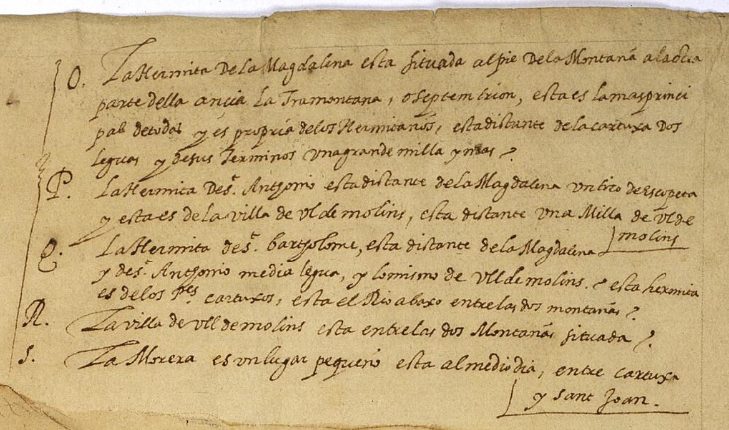 O. La Hermita De la Magdalena esta situada al pie De la Montaña a la otra
parte della ancia La Tramontana, o septemtrion, esta es la mas princi
pal de todas y es propria de los Hermitaños, esta distante de la cartuxa dos
leguas y de sus Terminos una grande milla y mas.
P. La Hermita De S. Anthonio esta distante de la Magdalena un tiro de escopeta
y esta es de la villa de Vl de molins, esta distante una Milla de Vl de
molins
Q. La Hermita de S. Bartholome, esta distante de la Magdalena
y de S. Anthonio media legua, y lo mismo de Vll de molins. esta hermita
es de los Pes. cartuxos, esta el Rio abaxo entre las dos montañas.
R. La villa de Vll de molins esta entre las dos Montañas situada.
S. La Morera es un lugar pequeño esta al medio dia, entre cartuxa
y sant Joan.